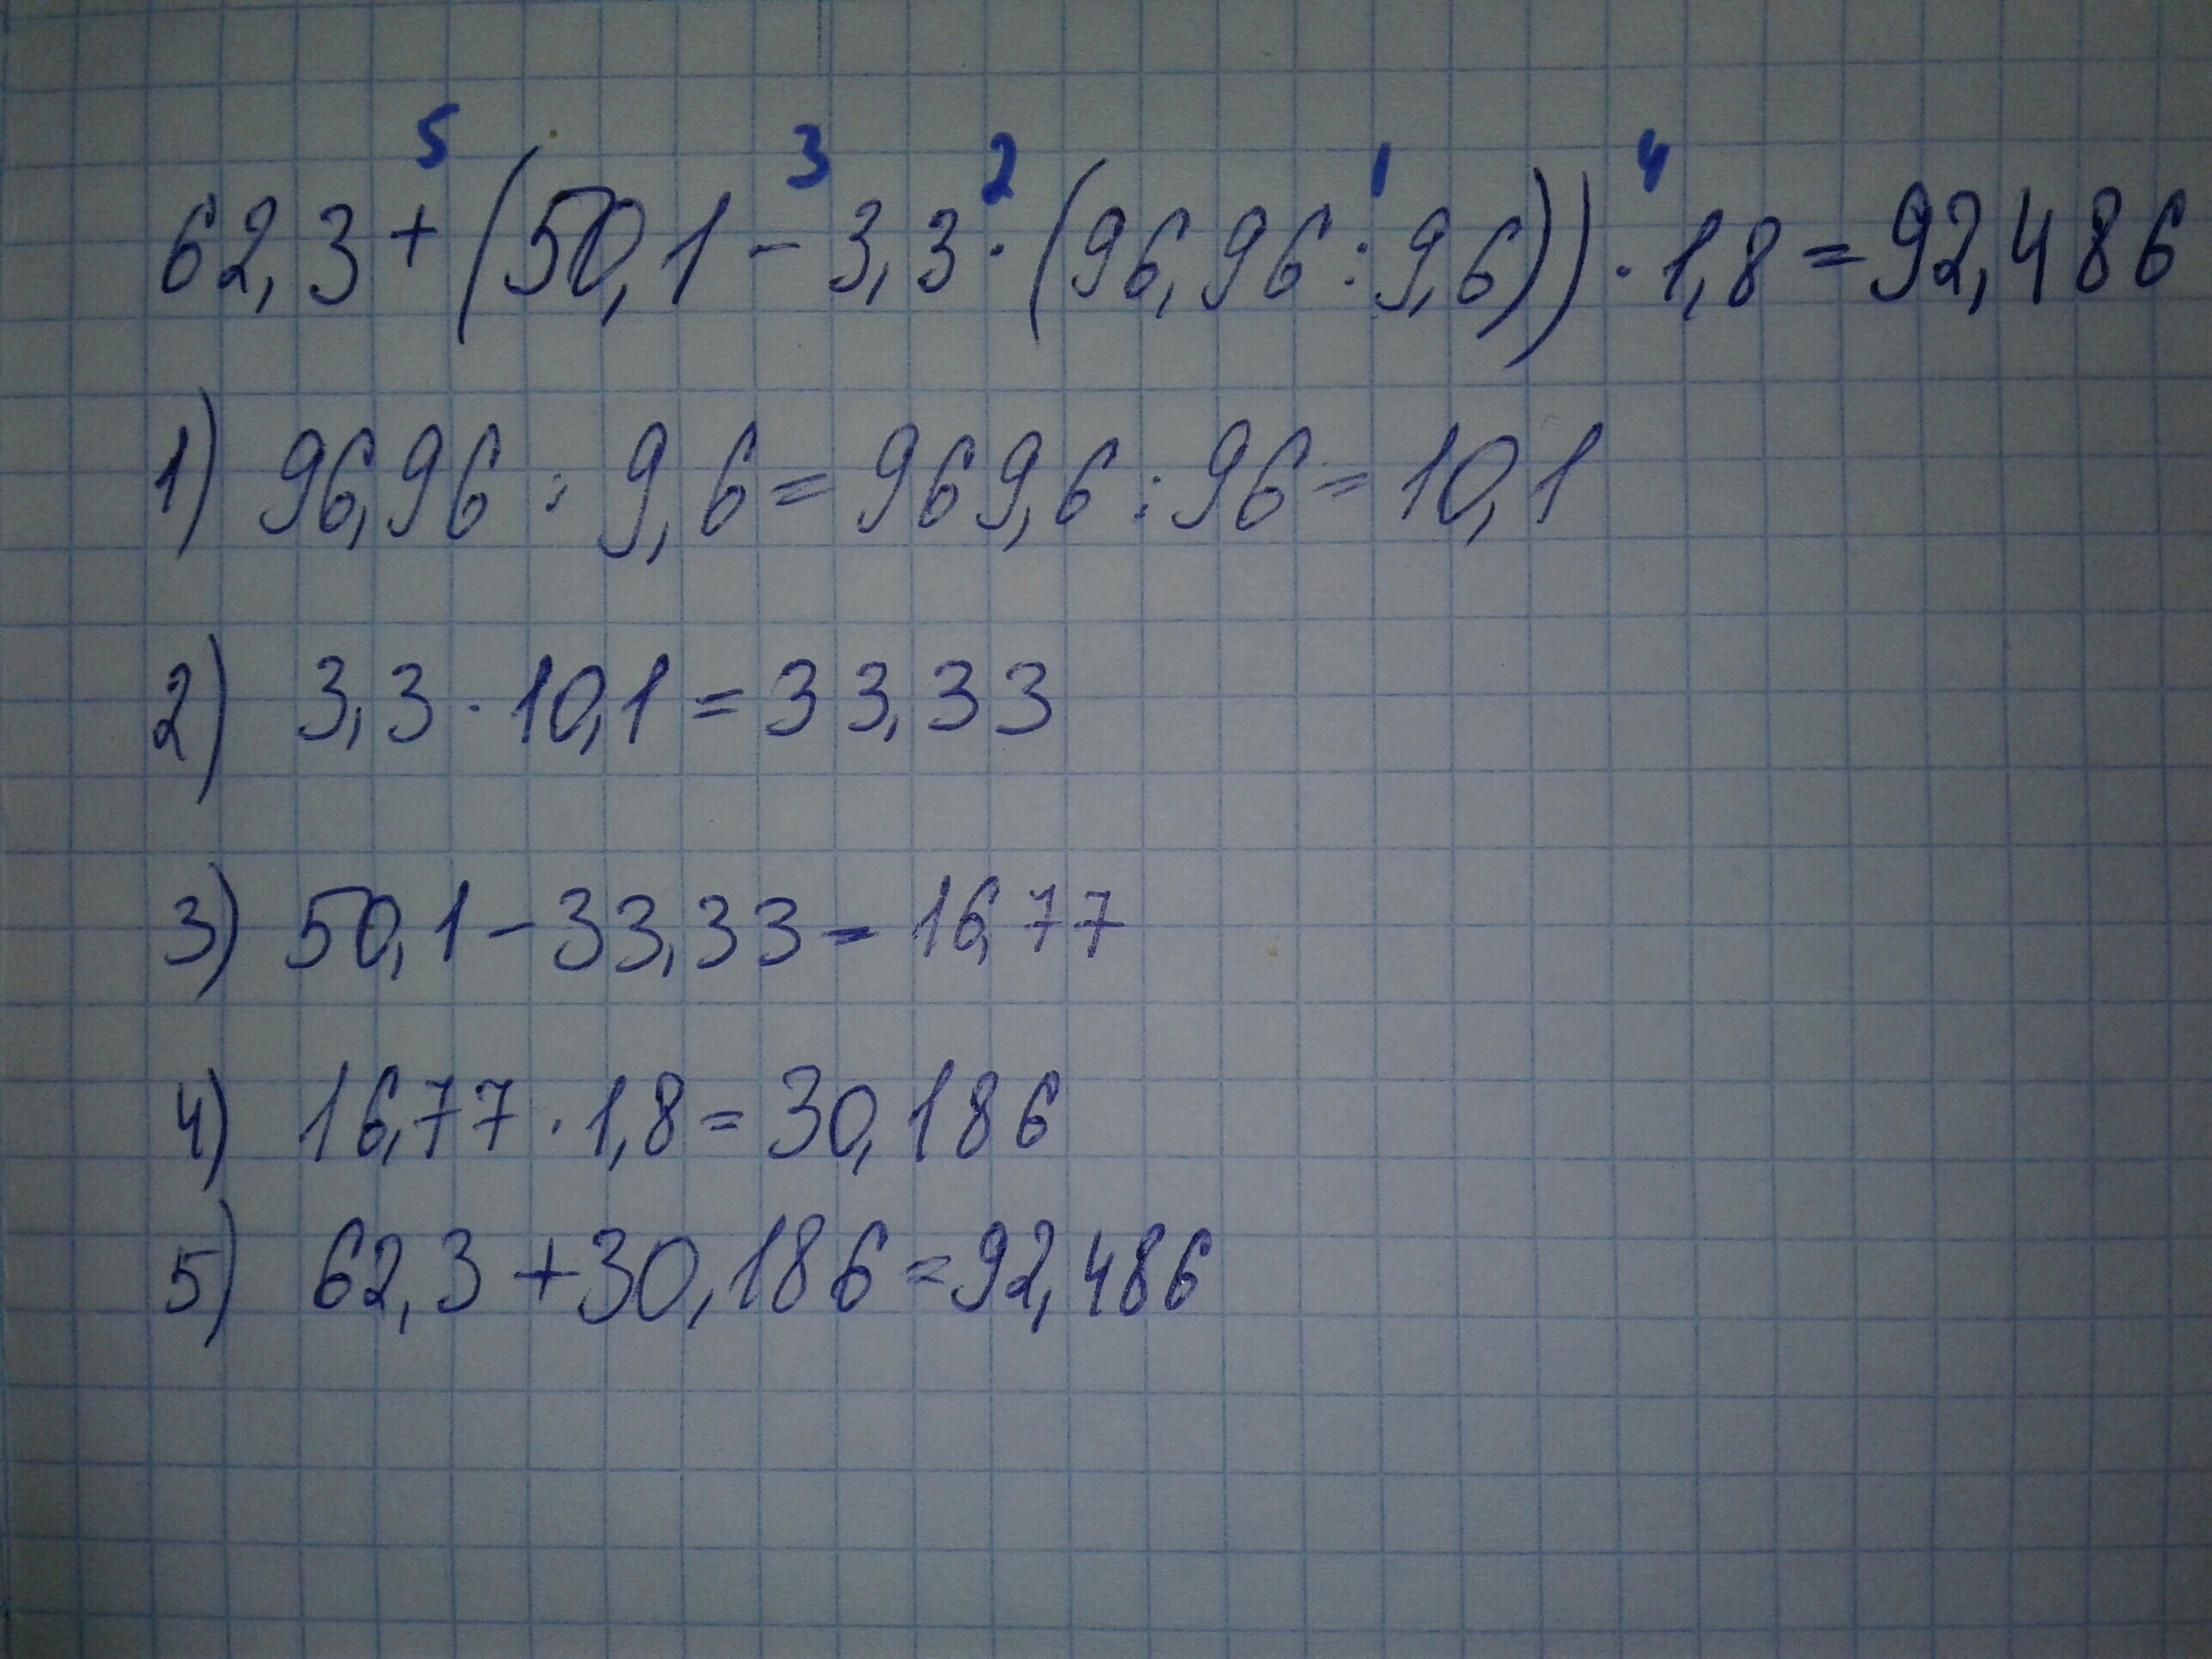 5 3 2 1 4
62,3+(50,1-3,3·(96,96:9,6))·1,8=92,486
1) 96,96:9,6=969,6:96=10,1
2) 3,3·10,1=33,33
3) 50,1-33,33=16,77
4) 16,77·1,8=30,186
5) 62,3+30,186=92,486